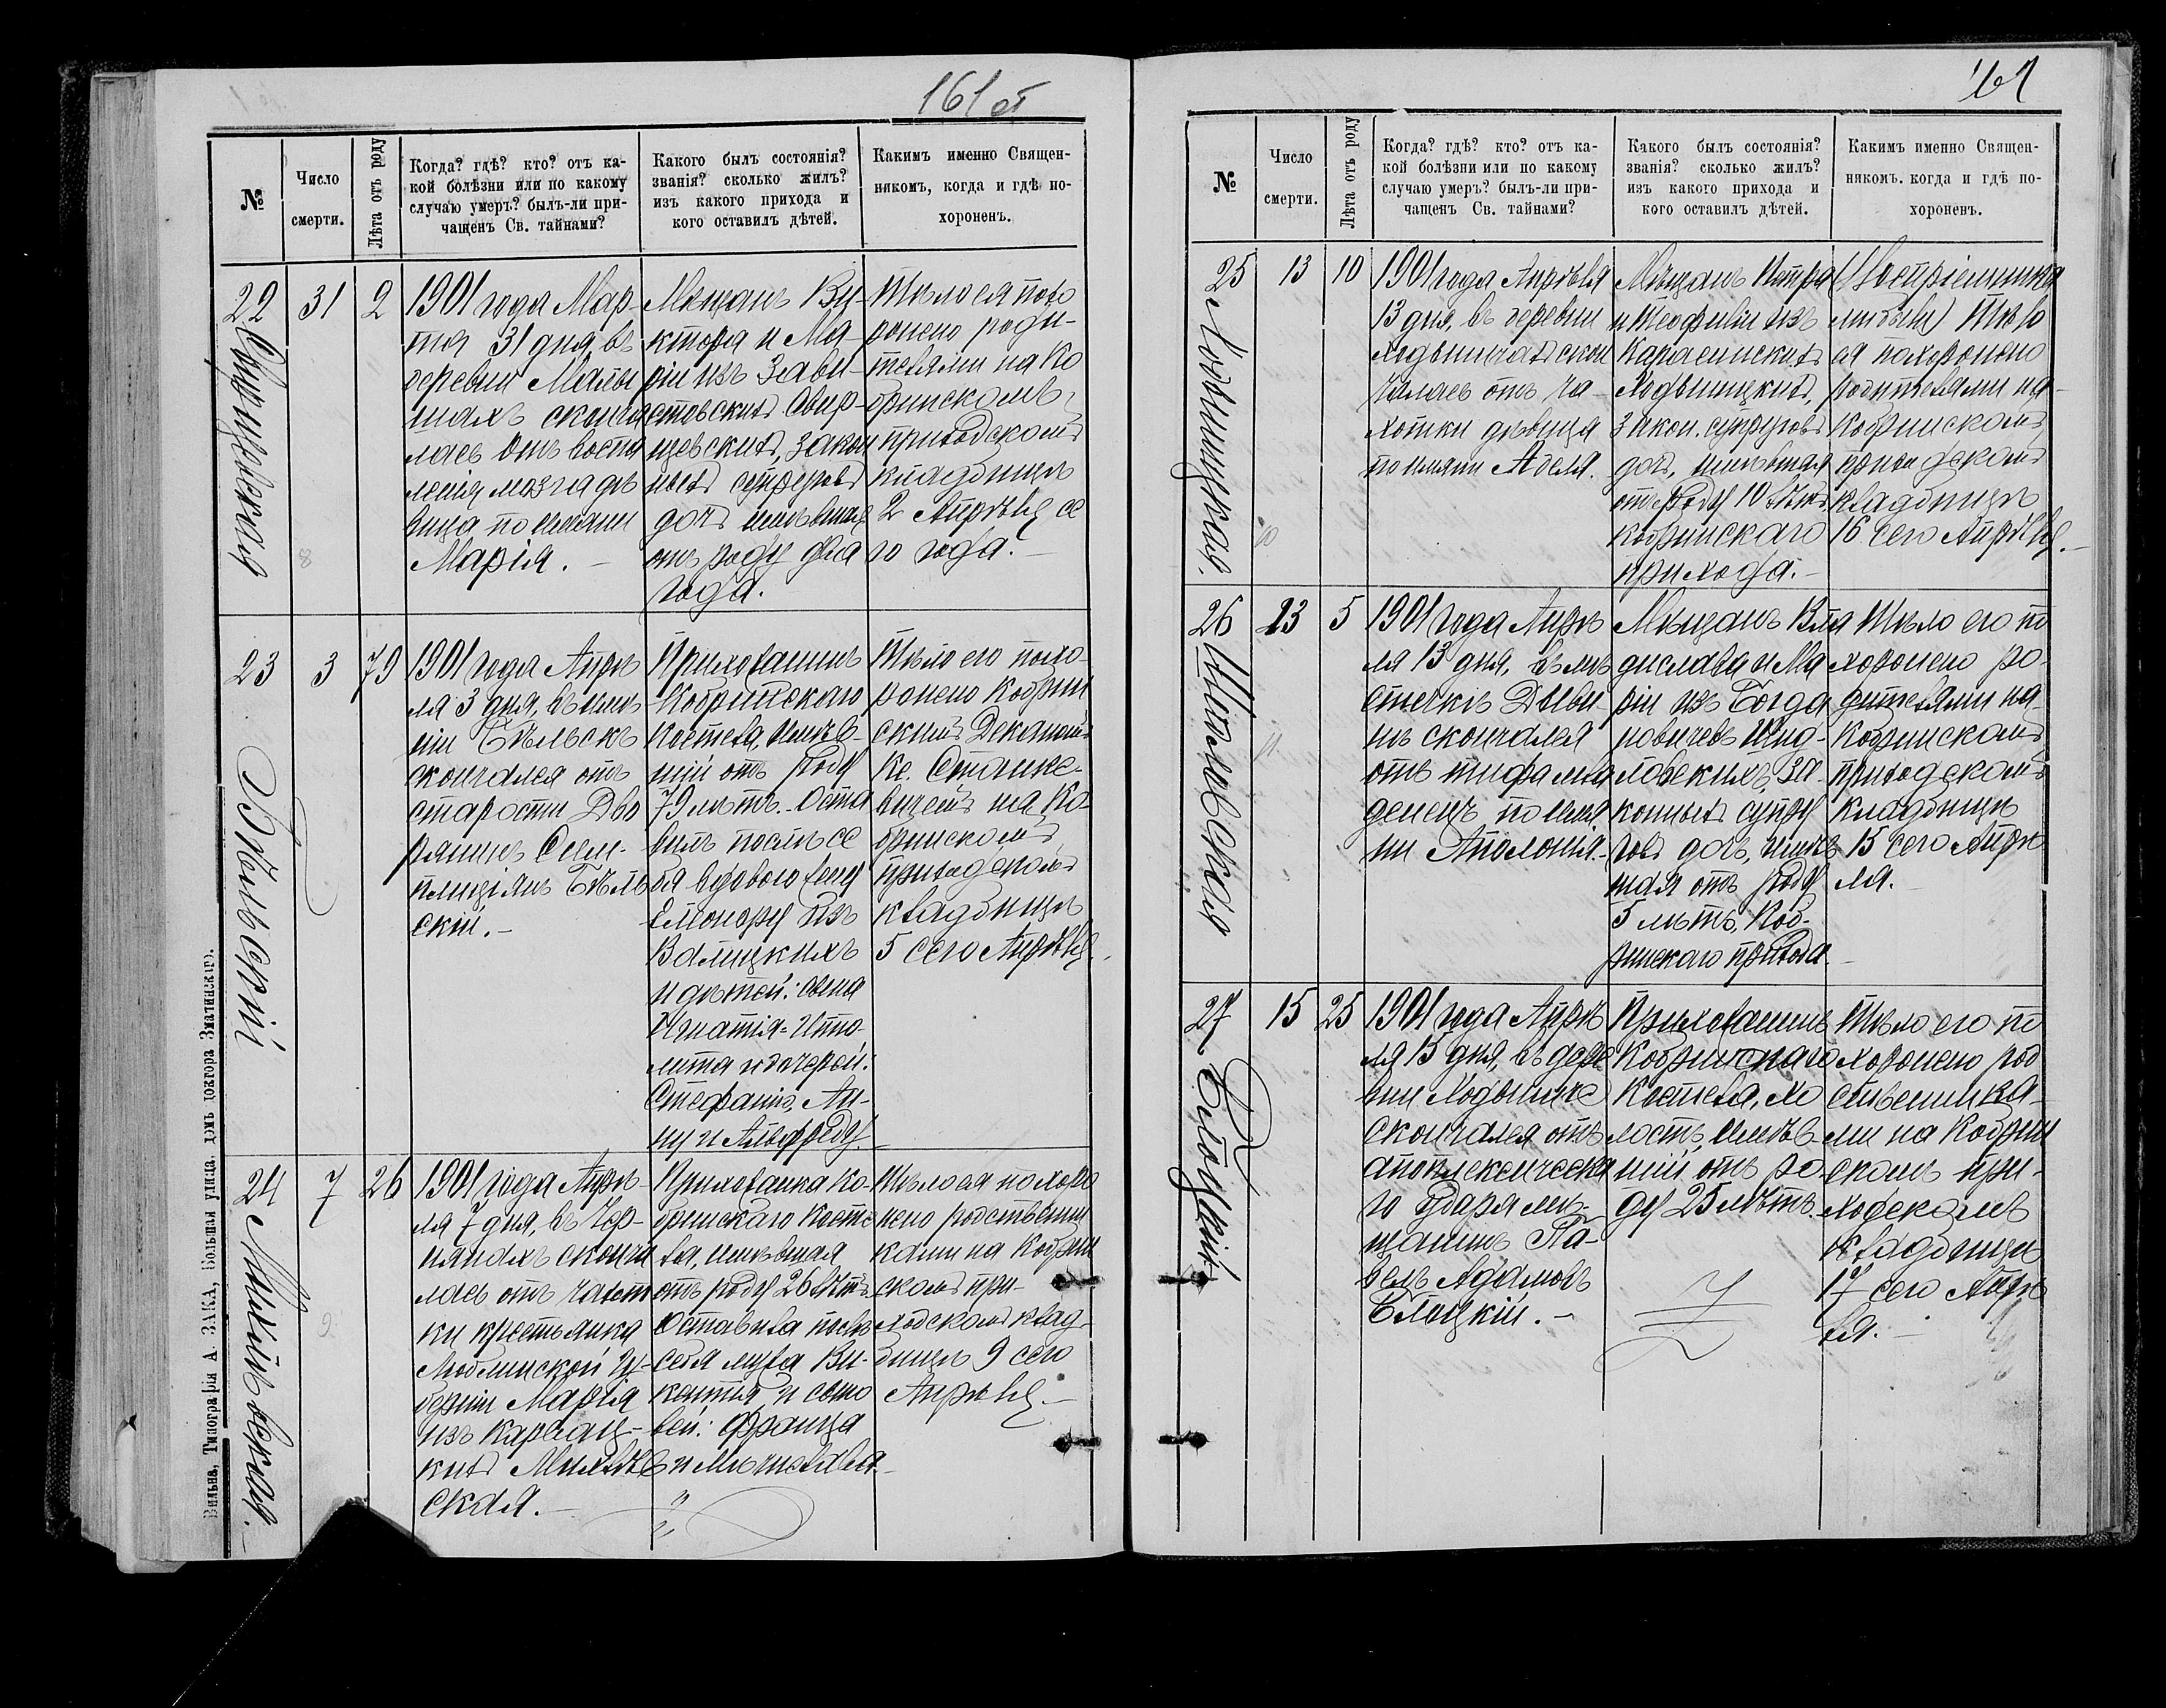 161 об
№
Число
смерти.
Лѣта отъ роду
Когда? гдѣ? кто? отъ ка-
кой болѣзни или по какому
случаю умеръ? былъ-ли при-
чащенъ Св. тайнами?
Какого былъ состоянія?
званія? сколько жилъ?
изъ какого прихода и
кого оставилъ дѣтей.
Какимъ именно Священ-
никомъ, когда и гдѣ по-
хороненъ.
22
31
2
1901 года Мар-
та 31 дня, въ
деревни
шахъ сконча
лась отъ воспа
ленія мозга дѣ
вица по имени
Марія. —
Мѣщанъ Ви-
ктора и Ма-
ріи изъ Зави-
стовскихъ Свир-
щевскихъ, закон
ныхъ супруговъ
дочь имѣвшая
отъ роду два
года.
Тѣло ея похо
ронено роди-
телями на Ко
бринскомъ
приходскомъ
кладбищѣ
2 Апрѣля се
го года. —
8
23
Бѣльскій
3
79
1901 года Апрѣ
ля 3 дня, въ имѣ
ніи Бѣльскъ
скончался отъ
старости Дво
рянинъ
Бѣль
скій. —
Прихожанинъ
Кобринскаго
Костела, имѣв-
шій отъ роду
79 лѣтъ. Оста
вилъ послѣ се
бя вдовою жену
Елеонору изъ
Валицкихъ
и дѣтей: сына
Игнатія-Ипо-
лита и дочерей:
Стефанію, Ан-
ну и Альфреду
Тѣло его похо-
ронено Кобрин
скимъ Деканомъ
Кс. Станке-
вичемъ на Ко
бринскомъ
приходскомъ
кладбищѣ
5 сего Апрѣля.
24
7
26
1901 года Апрѣ-
ля 7 дня, въ Чер-
нянахъ сконча
лась отъ чахот
ки крестьянка
Люблинской гу-
берніи Марія
изъ
кихъ
ская. —
Прихожанка Ко-
бринскаго Косте
ла, имѣвшая
отъ роду 26 лѣтъ.
Оставила послѣ
себя мужа Ви-
кентія и сыно
вей: Франца
и Мечислава. —
Тѣло ея похоро
нено родственни
ками на Кобрин
скомъ при-
ходскомъ клад-
бищѣ 9 сего
Апрѣля. —
9
Вильна, Типографія А. ЗАКА, Большая улица, домъ доктора Знатинскаго.
161
№
Число
смерти.
Лѣта отъ роду
Когда? гдѣ? кто? отъ ка-
кой болѣзни или по какому
случаю умеръ? былъ-ли при-
чащенъ Св. тайнами?
Какого былъ состоянія?
званія? сколько жилъ?
изъ какого прихода и
кого оставилъ дѣтей.
Какимъ именно Священ-
никомъ, когда и гдѣ по-
хороненъ.
25
Ходыницкая.
13
10
1901 года Апрѣля
13 дня, въ деревни
Ходыничахъ скон
чалась отъ ча-
хотки дѣвица
по имяни Аделя.
Мѣщанъ Петра
и Теофиліи изъ
Карасинскихъ
Ходыницкихъ,
закон. супруговъ
дочь, имѣвшая
отъ роду 10 лѣтъ
кобринскаго
прихода. —
Тѣло
ея похоронено
родителями на
Кобринскомъ
приходскомъ
кладбищѣ
16 сего Апрѣля. —
10
26
13
5
1901 года Апрѣ
ля 13 дня, въ мѣ
стечкѣ Дыви-
нѣ скончался
отъ тифа мла
денецъ по имя
ни Аполонія. —
Мѣщанъ Вла
дислава и Ма
ріи изъ Богда
новичевъ
за-
конныхъ супру
говъ дочь, имѣв
шая отъ роду
5 лѣтъ, Коб-
ринскаго прихода. —
Тѣло его по
хоронено ро-
дителями на
Кобринскомъ
приходскомъ
кладбищѣ
15 сего Апрѣ
ля. —
11
27
Блоцкій
15
25
1901 года Апрѣ
ля 15 дня, въ дере
вни Ходыничѣ
скончался отъ
апоплексическа
го удара мѣ-
щанинъ Па-
велъ Адамовъ
Блоцкій. —
Прихожанинъ
Кобринскаго
Костела, хо
лостъ, имѣв-
шій отъ ро-
ду 25 лѣтъ.
Тѣло его по
хоронено род
ственника-
ми на Кобрин
скомъ при-
ходскомъ
кладбищѣ
17 сего Апрѣ
ля. —